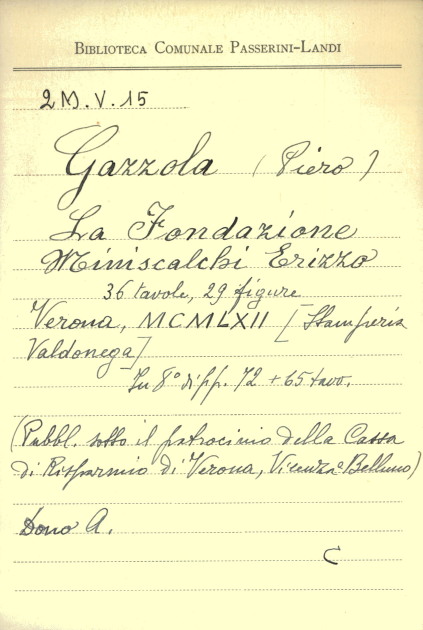 BIBLIOTECA COMUNALE PASSERINI-LANDI
2M.V.15
Gazzola (Piero)
La Fondazione
Miniscalchi Erizzo
36 tavole, 29 figure
Verona, MCMLXII [Stamperia
Valdonega]
In 8° di pp. 72 + 65 tavo.
(Pubbl. sotto il patrocinio della Cassa
di Risparmio di Verona, Vicenza e Belluno)
Dono A.
C